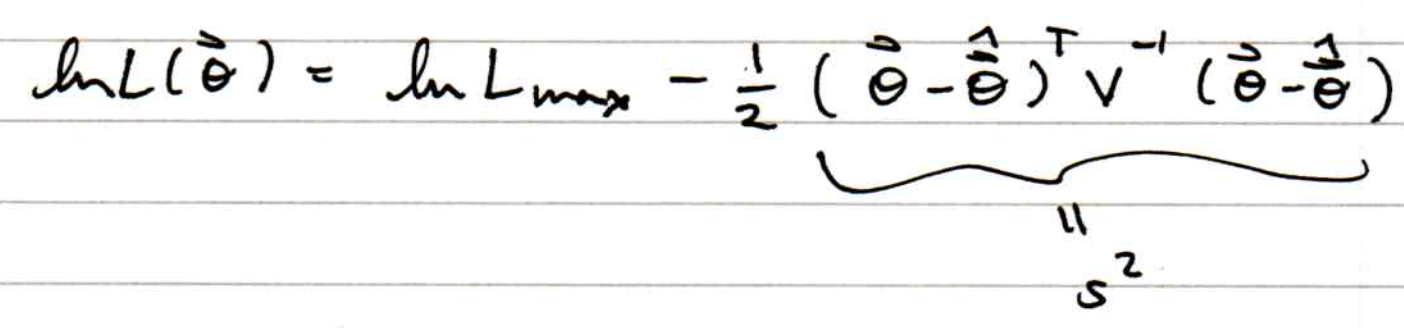 ln L(θ⃗) = ln L_max - 1/2 (θ⃗ - θ⃗̂)ᵀ V⁻¹ (θ⃗ - θ⃗̂)
||
s²